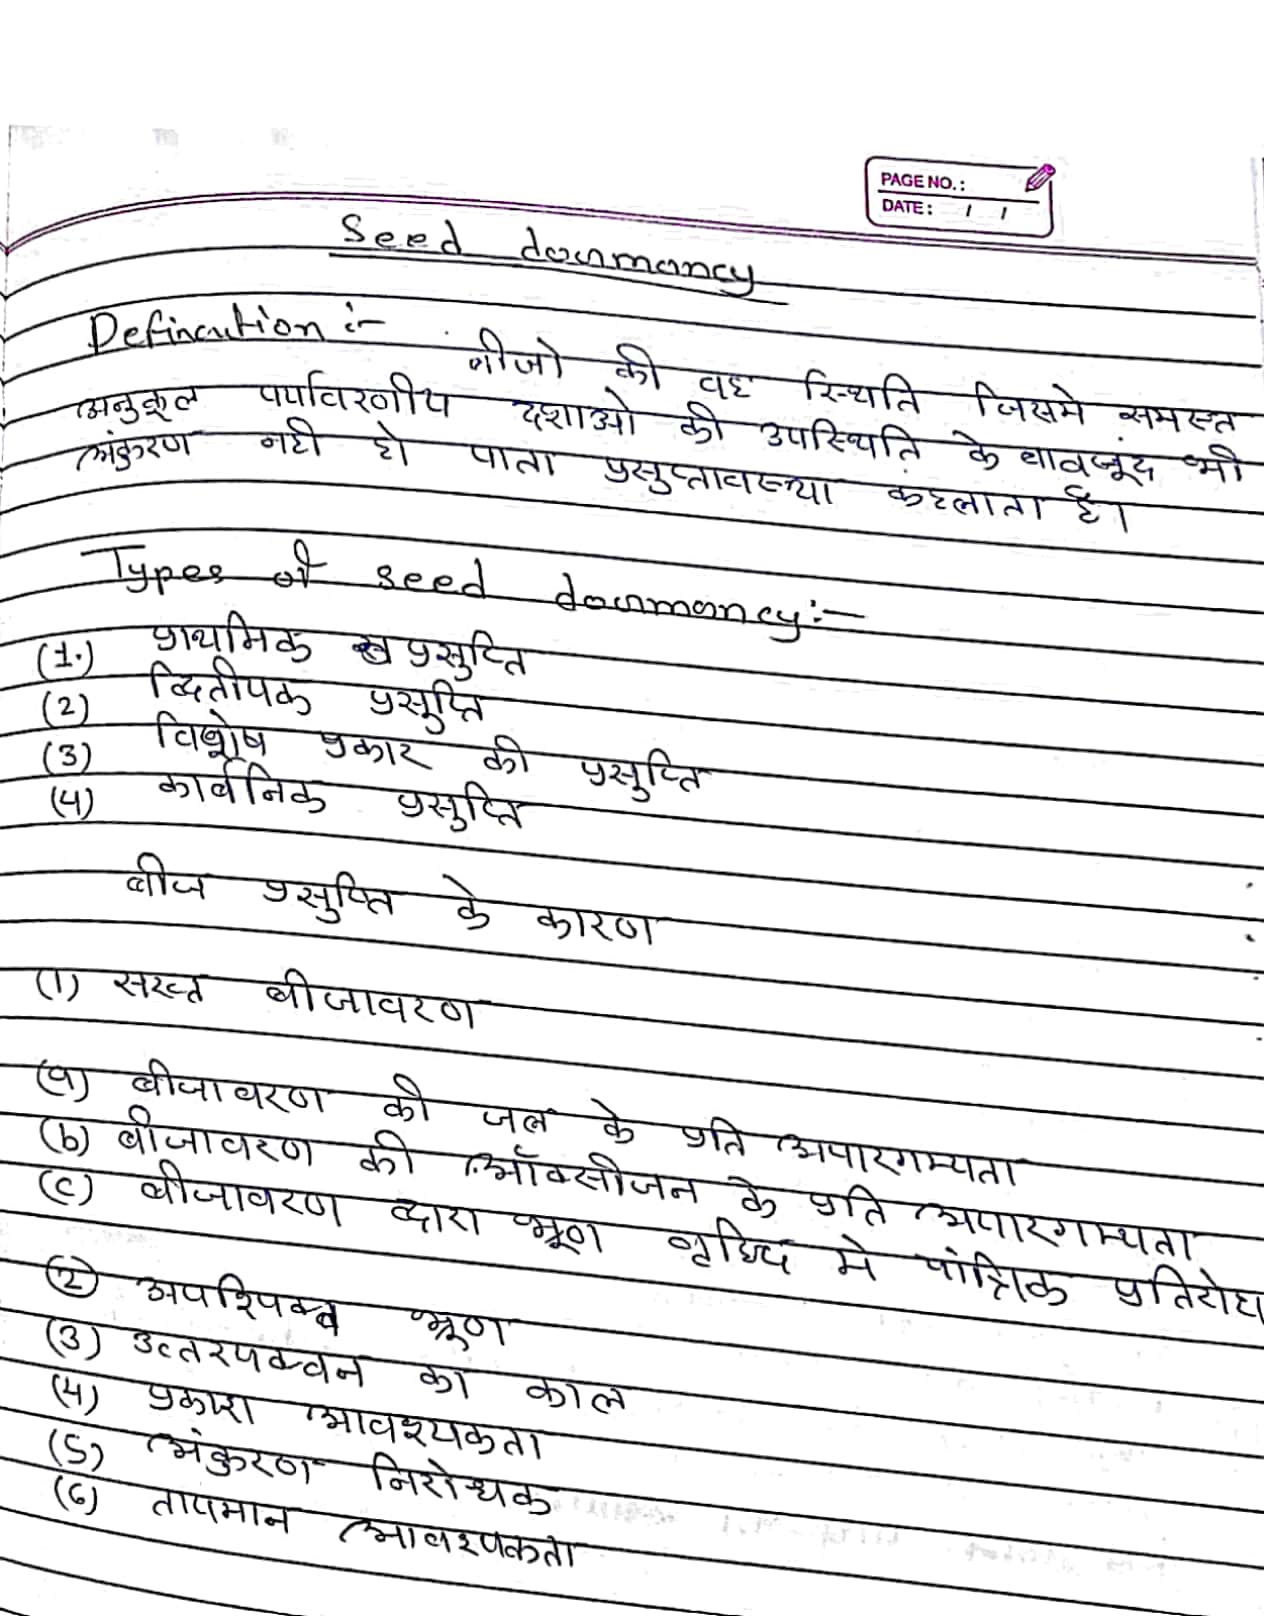 PAGE NO.:
DATE: / /
Seed dormancy
Defination :-
बीजो की वह स्थिति जिसमे समस्त
अनुकूल पर्यावरणीय दशाओ की उपस्थिति के बावजूंद भी
अंकुरण नही हो पाता प्रसुप्तावस्था कहलाता है।
Types of seed dormancy:-
(1.) प्राथमिक प्रसुप्ति
(2) द्वितीयक प्रसुप्ति
(3) विशेष प्रकार की प्रसुप्ति
(4) कार्बनिक प्रसुप्ति
बीज प्रसुप्ति के कारण
(1) सख्त बीजावरण
(a) बीजावरण की जल के प्रति अपारगम्यता
(b) बीजावरण की ऑक्सीजन के प्रति अपारगम्यता
(c) बीजावरण द्वारा भ्रूण वृध्दि मे यांत्रिक प्रतिरोध
(2) अपरिपक्व भ्रूण
(3) उत्तरपक्वन का काल
(4) प्रकाश आवश्यकता
(5) अंकुरण निरोधक
(6) तापमान आवश्यकता